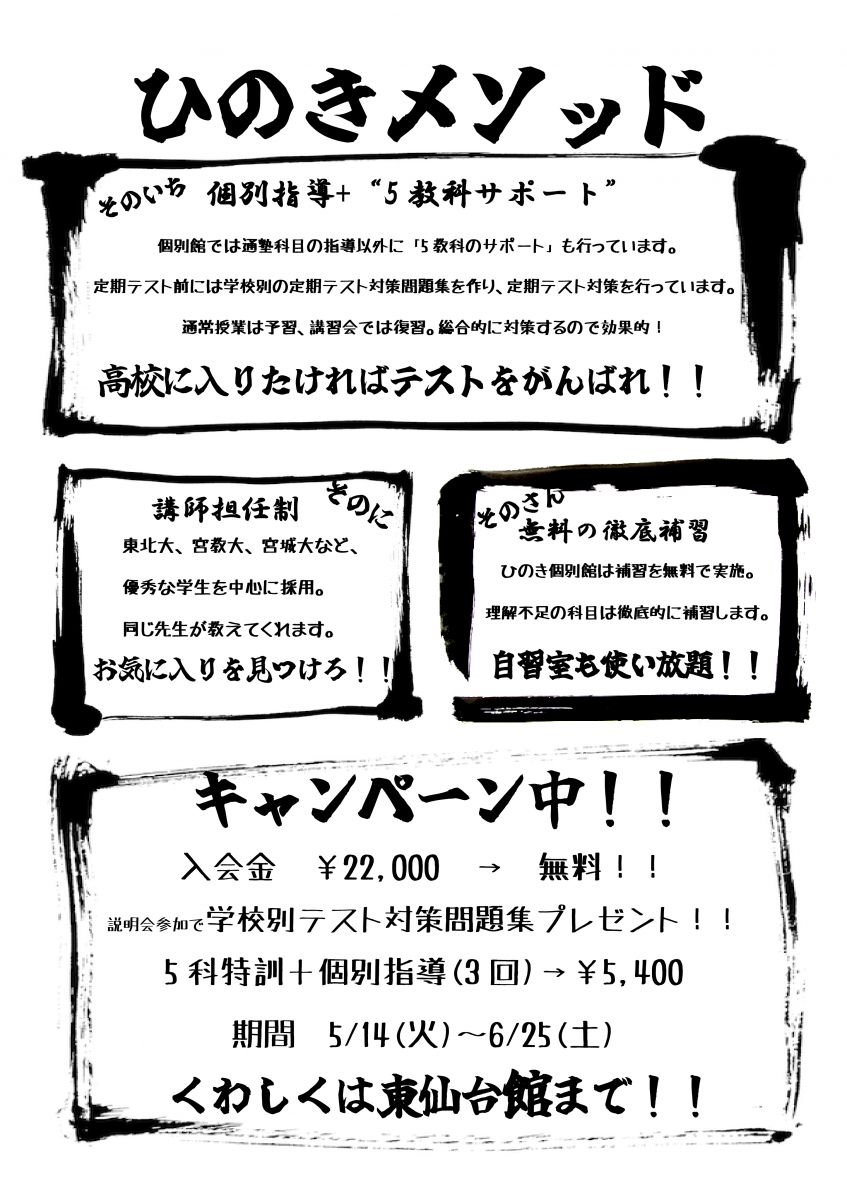 ひのきメソッド
そのいち 個別指導+“5教科サポート”
個別館では通塾科目の指導以外に「5教科のサポート」も行っています。
定期テスト前には学校別の定期テスト対策問題集を作り、定期テスト対策を行っています。
通常授業は予習、講習会では復習。総合的に対策するので効果的！
高校に入りたければテストをがんばれ！！
そのに
講師担任制
東北大、宮教大、宮城大など、
優秀な学生を中心に採用。
同じ先生が教えてくれます。
お気に入りを見つけろ！！
そのさん
無料の徹底補習
ひのき個別館は補習を無料で実施。
理解不足の科目は徹底的に補習します。
自習室も使い放題！！
キャンペーン中！！
入会金　￥22,000　→　無料！！
説明会参加で学校別テスト対策問題集プレゼント！！
5科特訓＋個別指導(3回)→￥5,400
期間　5/14(火)～6/25(土)
くわしくは東仙台館まで！！